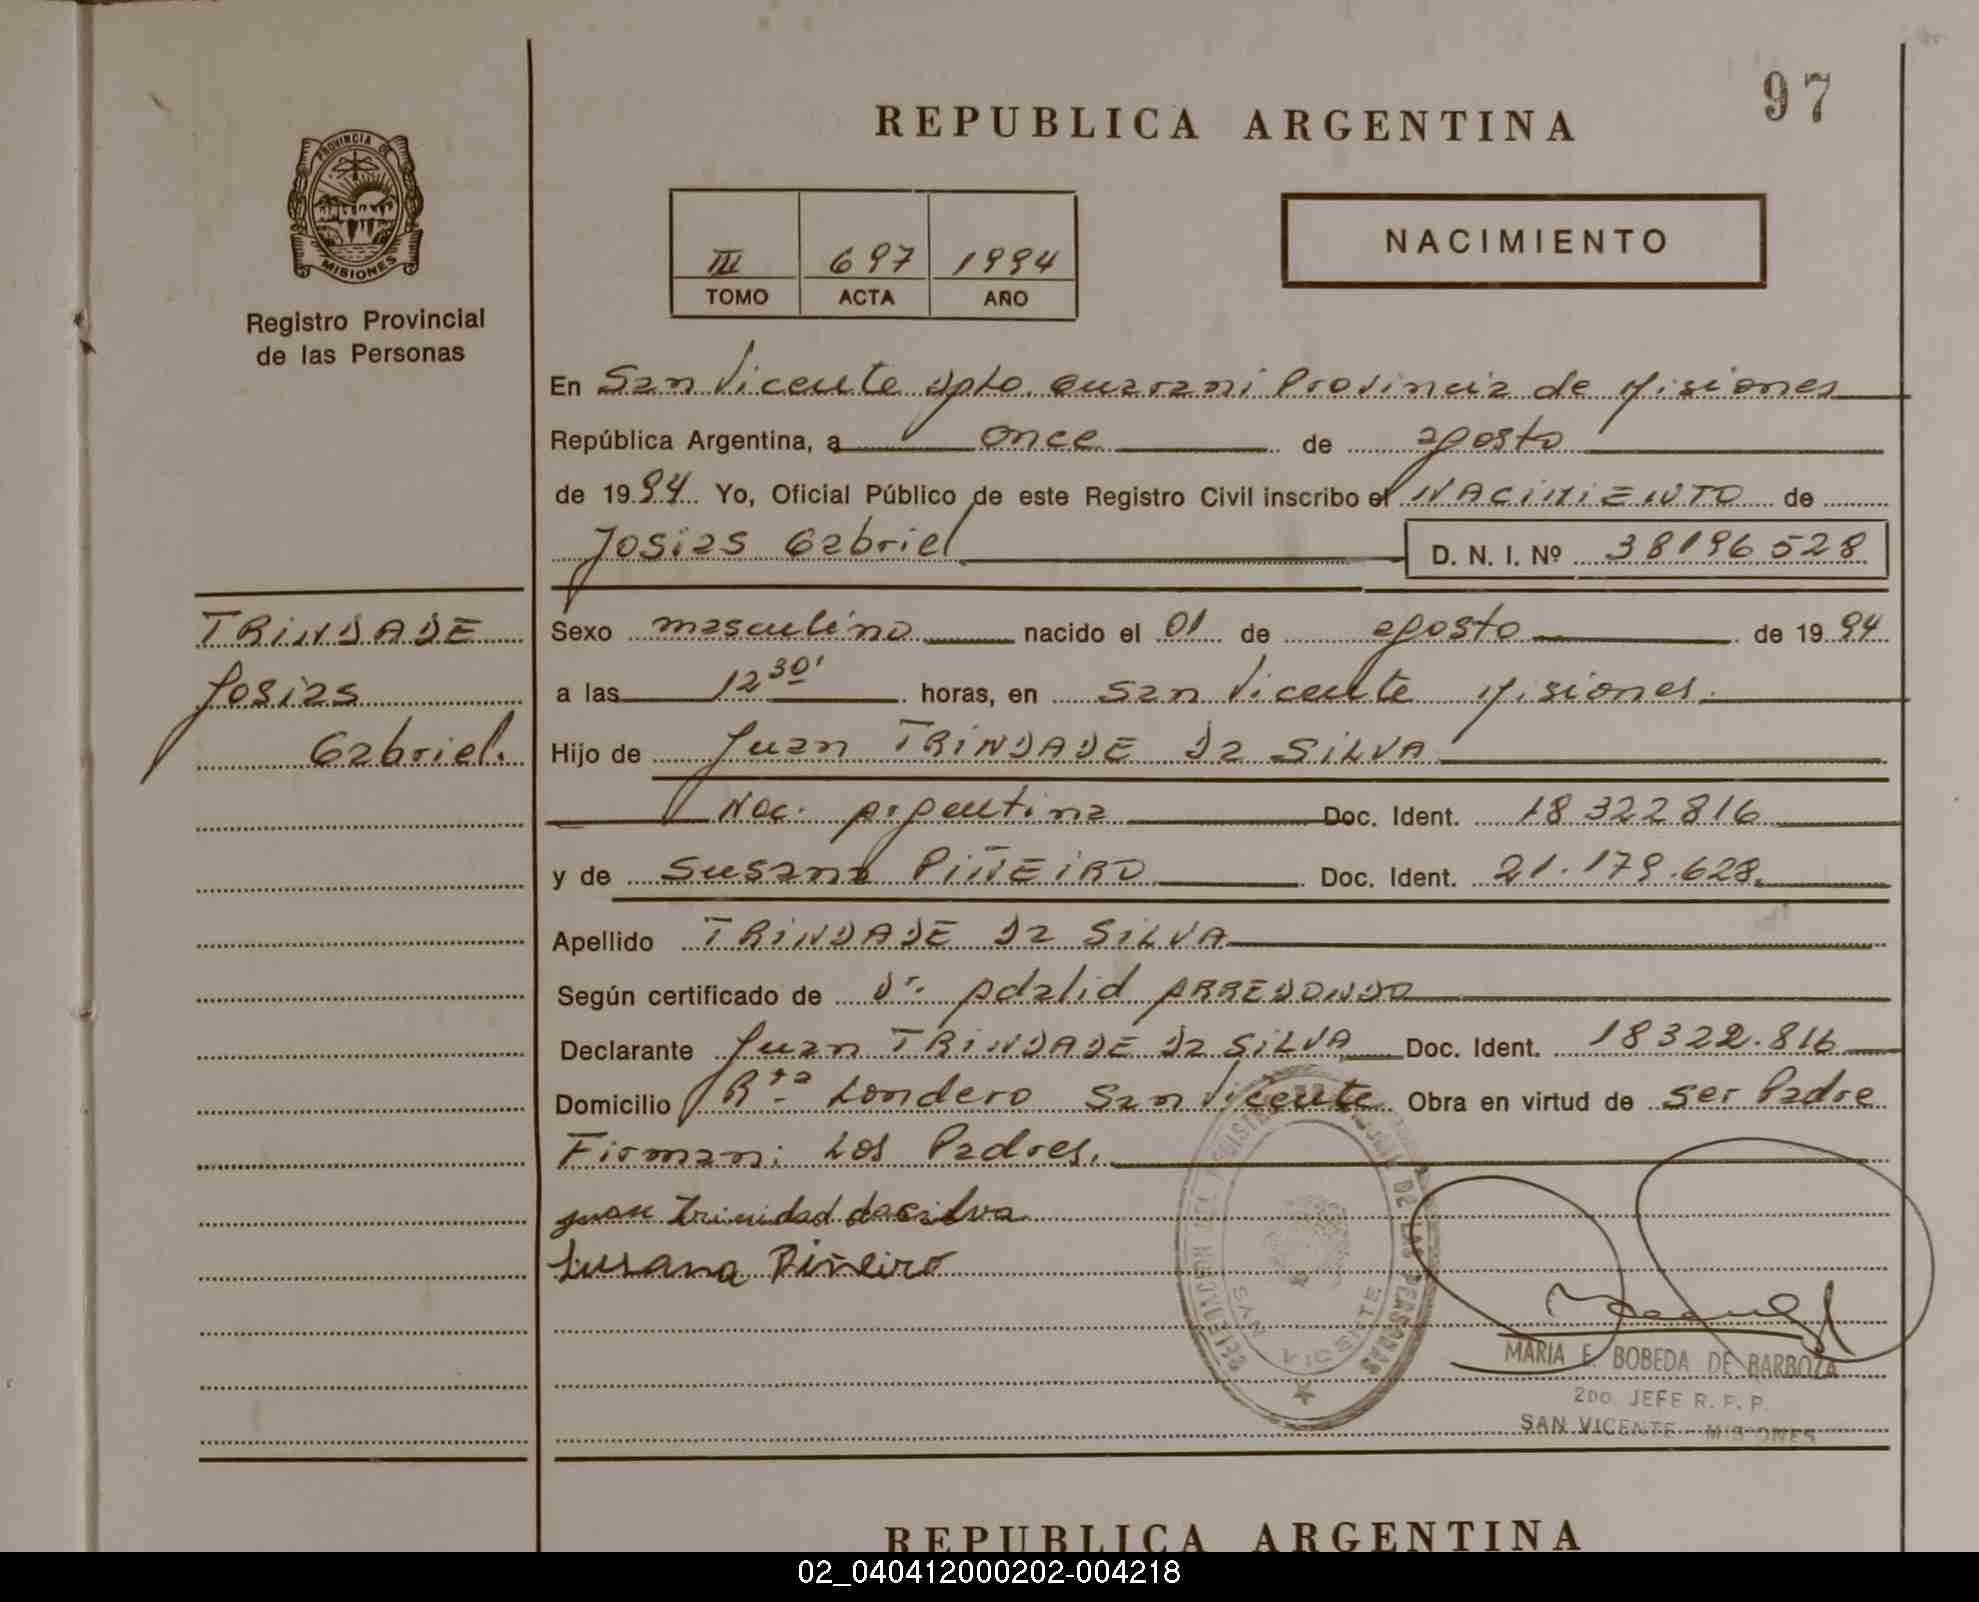 97
REPUBLICA ARGENTINA
PROVINCIA DE
MISIONES
Registro Provincial
de las Personas
III 697 1994
TOMO ACTA AÑO
NACIMIENTO
En San Vicente Dpto. Guarani Provincia de Misiones
República Argentina, a once de agosto
de 1994 Yo, Oficial Público de este Registro Civil inscribo el NACIMIENTO de
Josias Gabriel D. N. I. Nº 38196528
TRINDADE
Josias
Gabriel.
Sexo masculino nacido el 01 de agosto de 1994
a las 12 30' horas, en San Vicente Misiones.
Hijo de Juan TRINDADE Da SILVA
Nac. Argentina Doc. Ident. 18322816
y de Susana PIÑEIRO Doc. Ident. 21.179.628.
Apellido TRINDADE Da SILVA
Según certificado de Dr. Adalid ARREDONDO
Declarante Juan TRINDADE Da SILVA Doc. Ident. 18322.816
Domicilio Rta Londero San Vicente Obra en virtud de ser Padre
Firman: Los Padres.
juan Trinidad dacilva
Susana Piñeiro
DELEGACION DEL REGISTRO DE LAS PERSONAS
SAN VICENTE
MARIA E. BOBEDA DE BARBOZA
2DO. JEFE R. P. P.
SAN VICENTE - MISIONES
REPUBLICA ARGENTINA
02_040412000202-004218